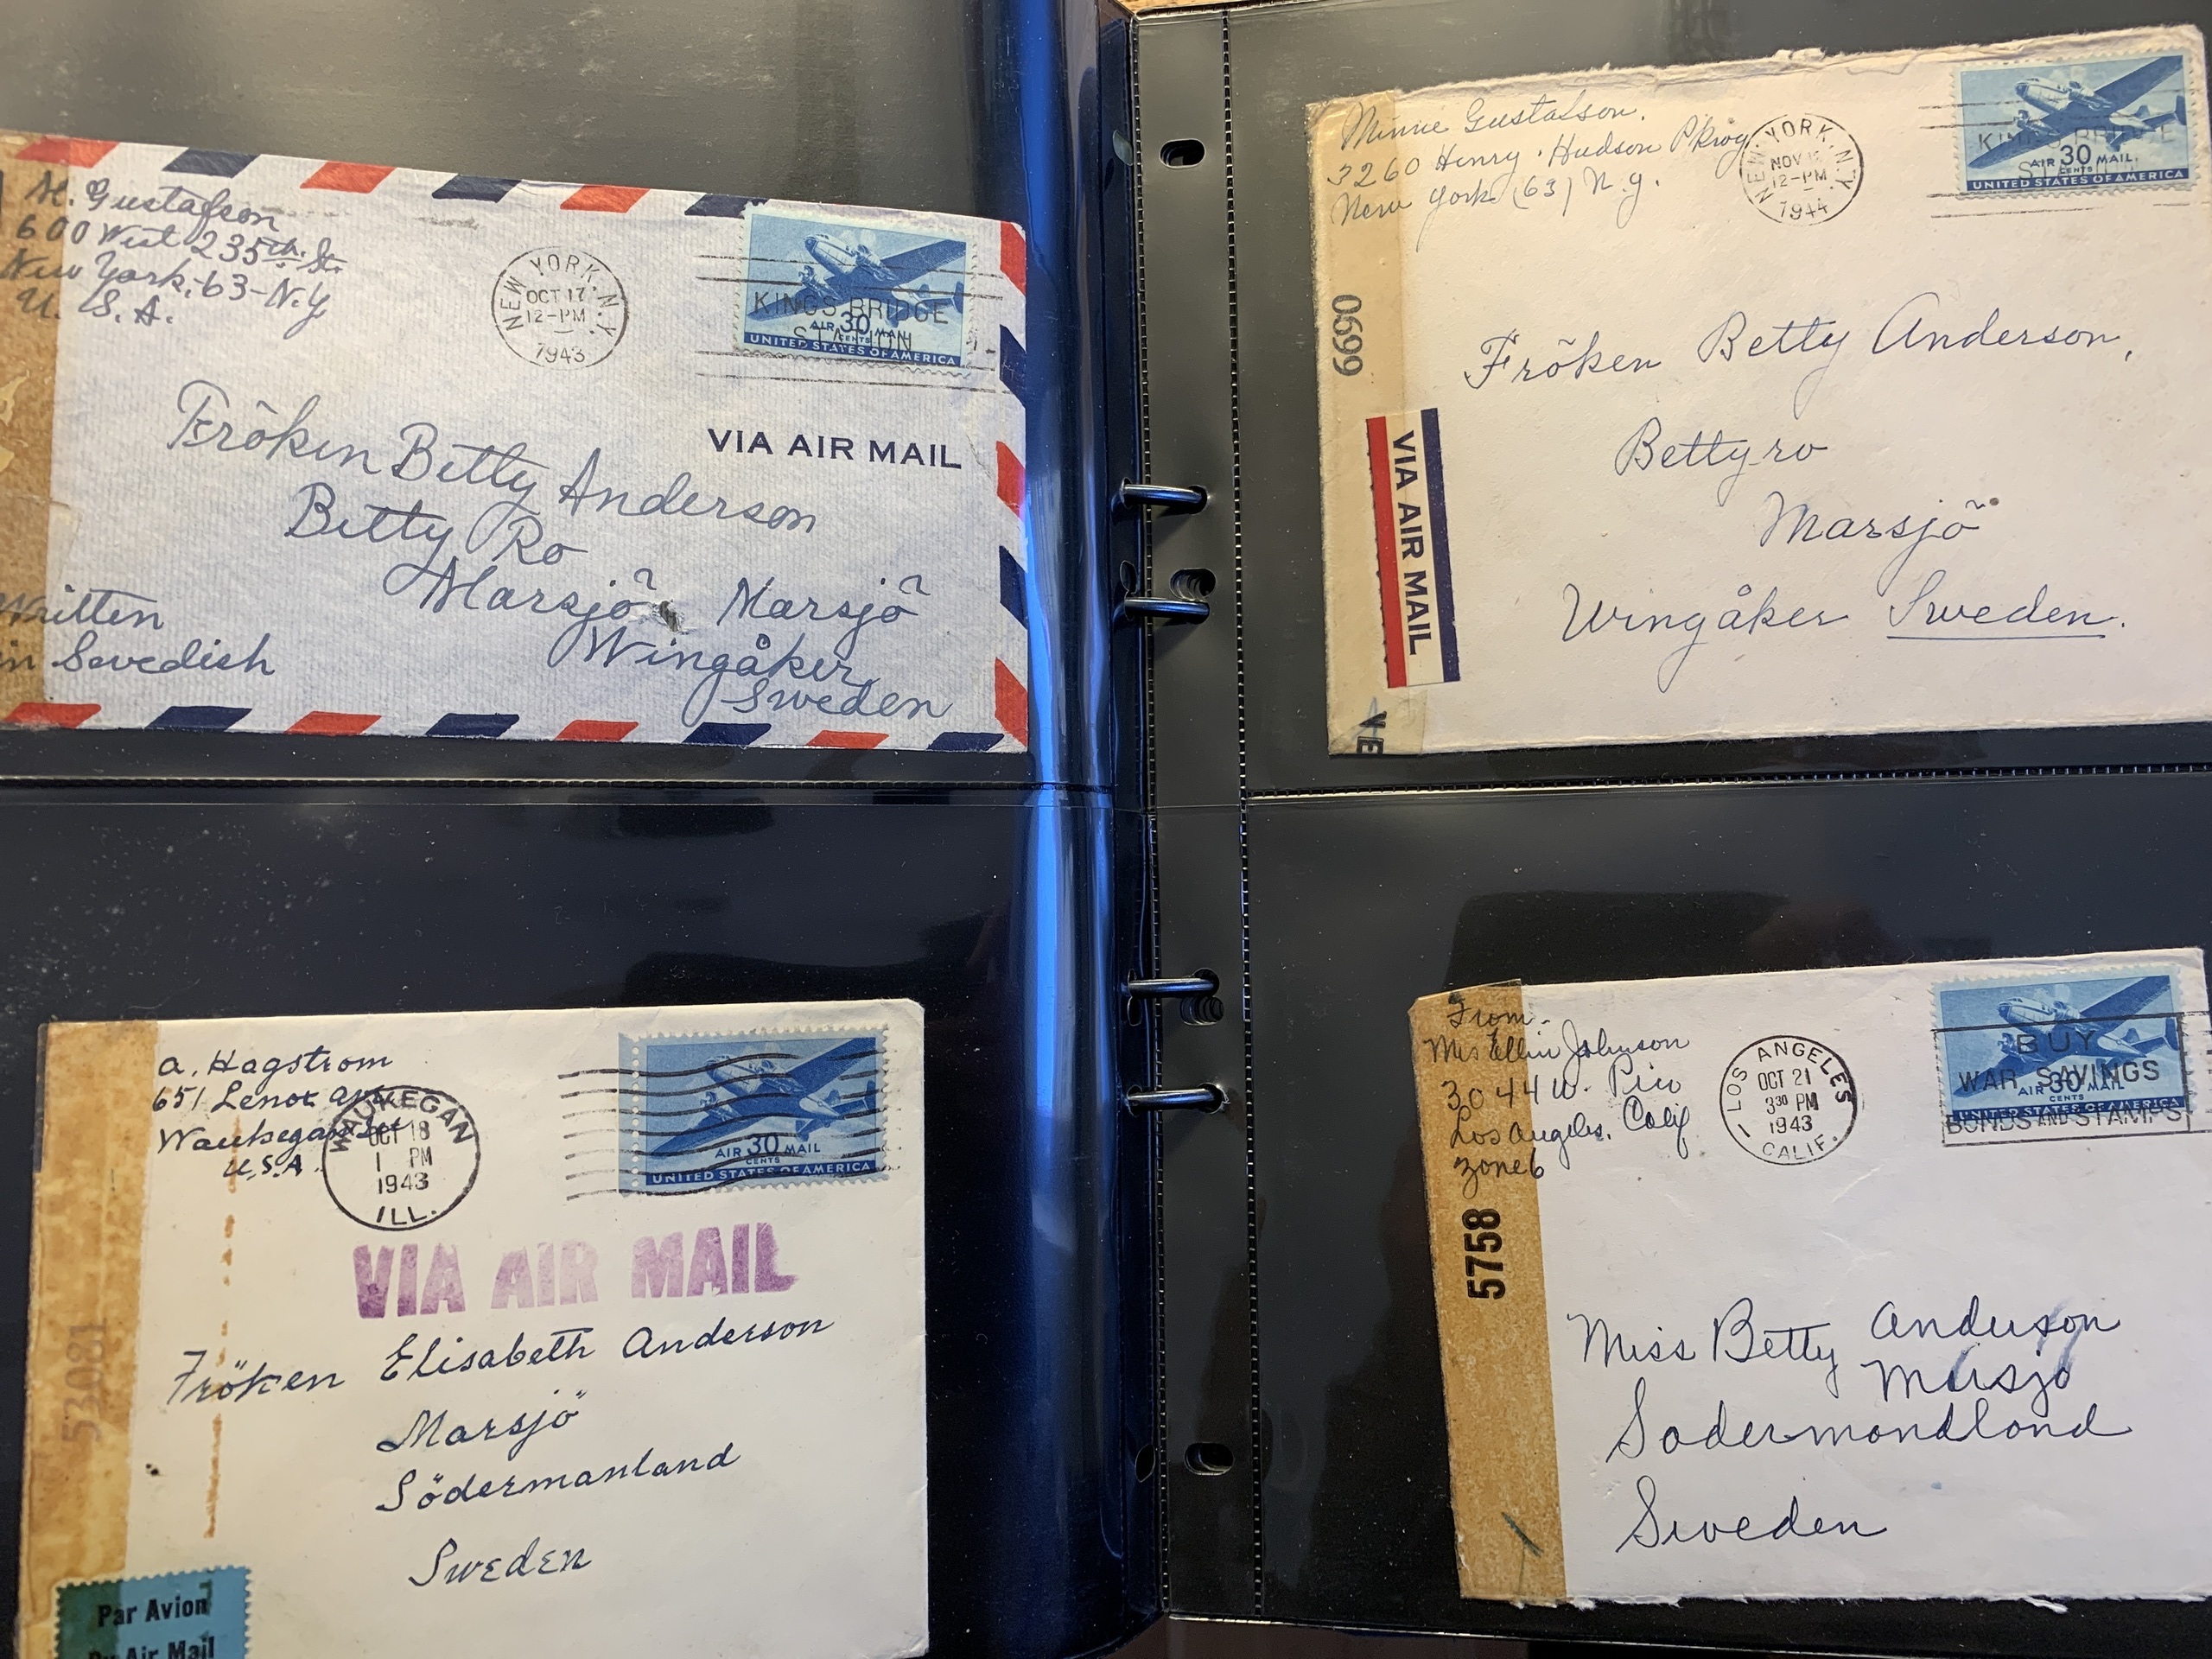 H. Gustafson
600 West 235th. St.
New York. 63-N.Y
U. S. A.
NEW YORK, N.Y.
OCT 17
12-PM
1943
KINGSBRIDGE
STATION
AIR 30 MAIL
CENTS
UNITED STATES OF AMERICA
VIA AIR MAIL
Fröken Betty Anderson
Betty Ro
Marsjö Marsjö
Wingåker
Sweden
Written
in Swedish
Minnie Gustafson.
3260 Henry. Hudson Pkwy
New York (63) N.Y.
NEW YORK, N.Y.
NOV
12-PM
1944
KINGSBRIDGE
AIR 30 MAIL
CENTS
UNITED STATES OF AMERICA
0699
VIA AIR MAIL
Fröken Betty Anderson,
Bettyro
Marsjö
Wingåker Sweden.
A. Hagstrom
651 Lenox Ave
Waukegan Ill
U.S.A.
WAUKEGAN
OCT 18
1 PM
1943
ILL.
AIR 30 MAIL
CENTS
UNITED STATES OF AMERICA
VIA AIR MAIL
53081
Fröken Elisabeth Anderson
Marsjö
Södermanland
Sweden
Par Avion
By Air Mail
From.
Mrs Ellin Johnson
3044 W. Pico
Los Angeles, Calif
Zone 6
LOS ANGELES
OCT 21
3 30 PM
1943
CALIF.
BUY
WAR SAVINGS
BONDS AND STAMPS
AIR 30 MAIL
CENTS
UNITED STATES OF AMERICA
5758
Miss Betty Anderson
Marsjo
Sodermondlond
Sweden